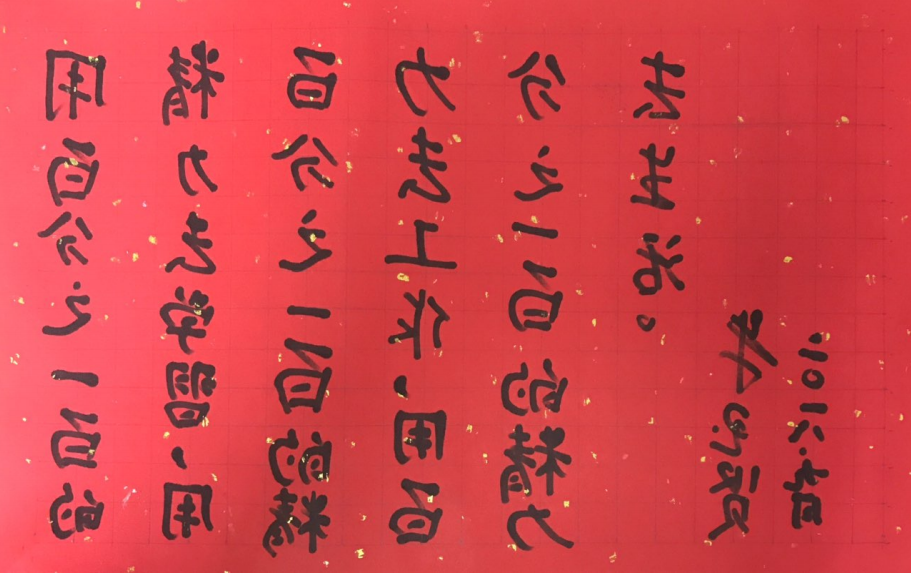 用百分之一百的
精力去学習，用
百分之一百的精
力去工作，用百
分之一百的精力
去生活。